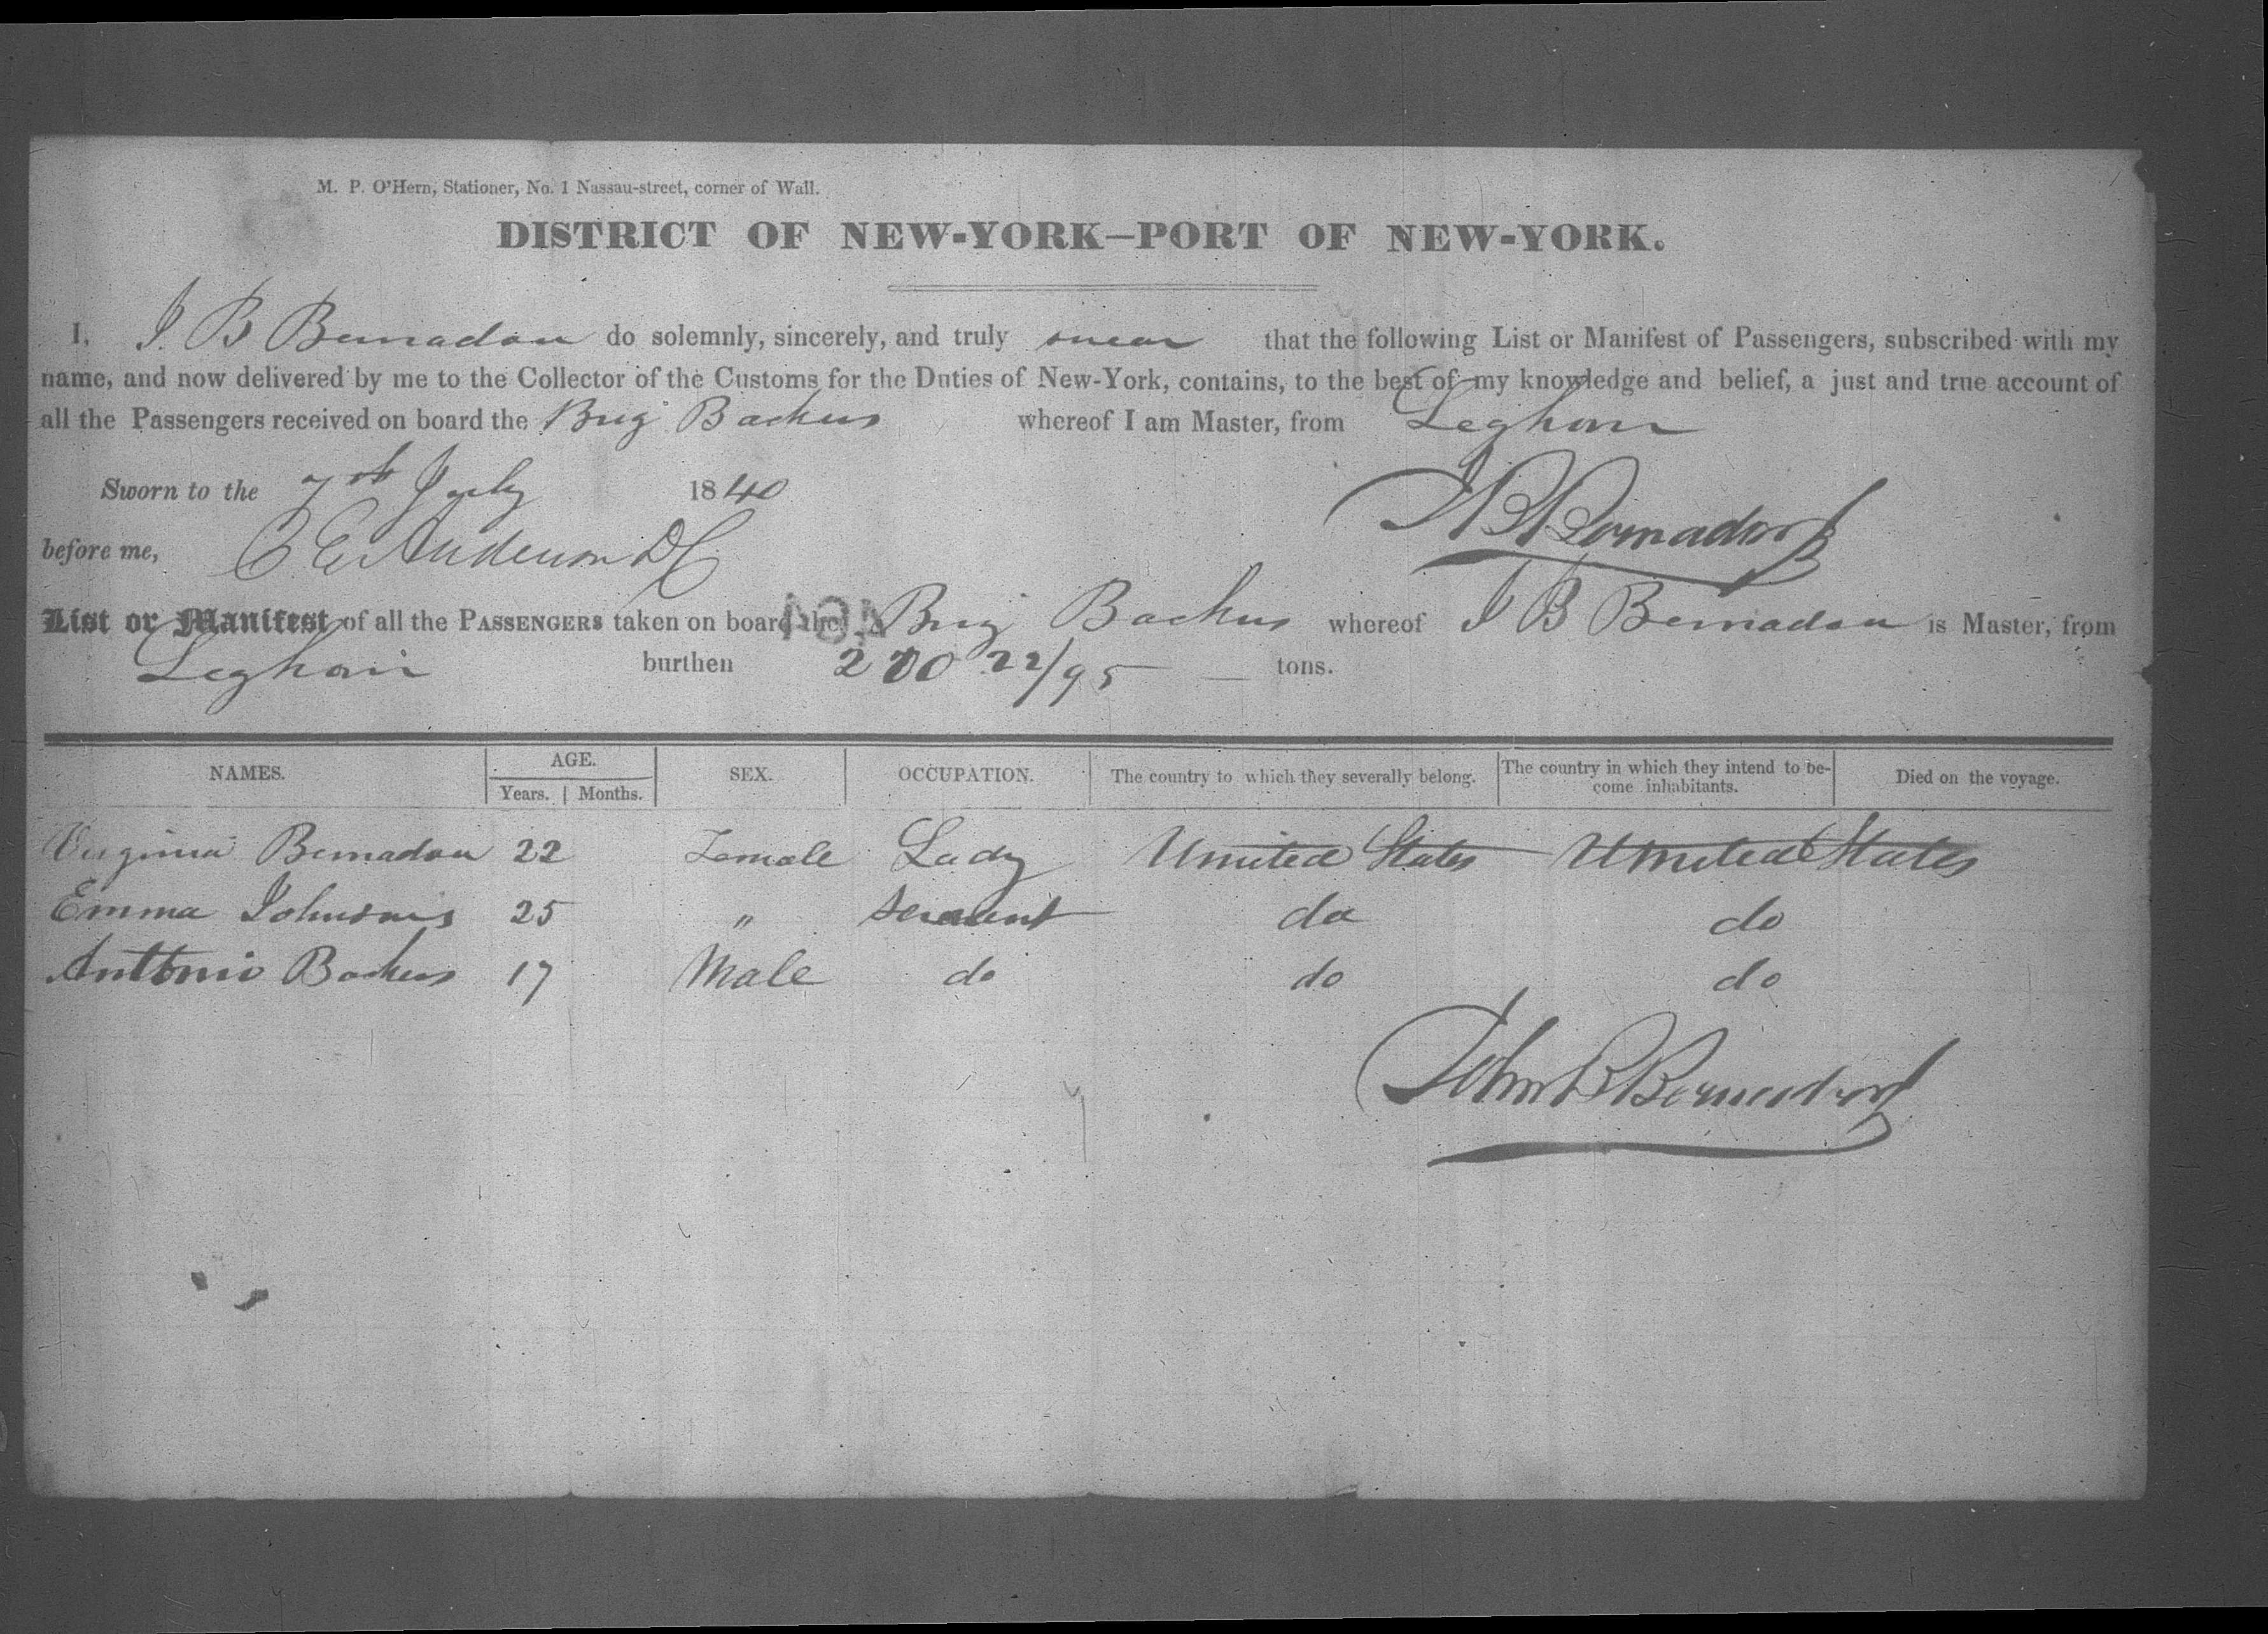 M. P. O'Hern, Stationer, No. 1 Nassau-street, corner of Wall.
DISTRICT OF NEW-YORK—PORT OF NEW-YORK.
I, J. B Bernadou do solemnly, sincerely, and truly swear that the following List or Manifest of Passengers, subscribed with my
name, and now delivered by me to the Collector of the Customs for the Duties of New-York, contains, to the best of my knowledge and belief, a just and true account of
all the Passengers received on board the Brig Backus whereof I am Master, from Leghorn
Sworn to the 7th July 1840
J B Bernadou
before me, C E Anderson DC
List or Manifest of all the PASSENGERS taken on board the Brig Backus whereof J B Bernadou is Master, from
Leghorn burthen 200 22/95 tons.
NAMES. AGE. SEX. OCCUPATION. The country to which they severally belong. The country in which they intend to be- Died on the voyage.
Years. Months. come inhabitants.
Virginia Bernadou 22 Female Lady United States United States
Emma 25 " Servant do do
Anttonio Backus 17 Male do do do
John B Bernadou